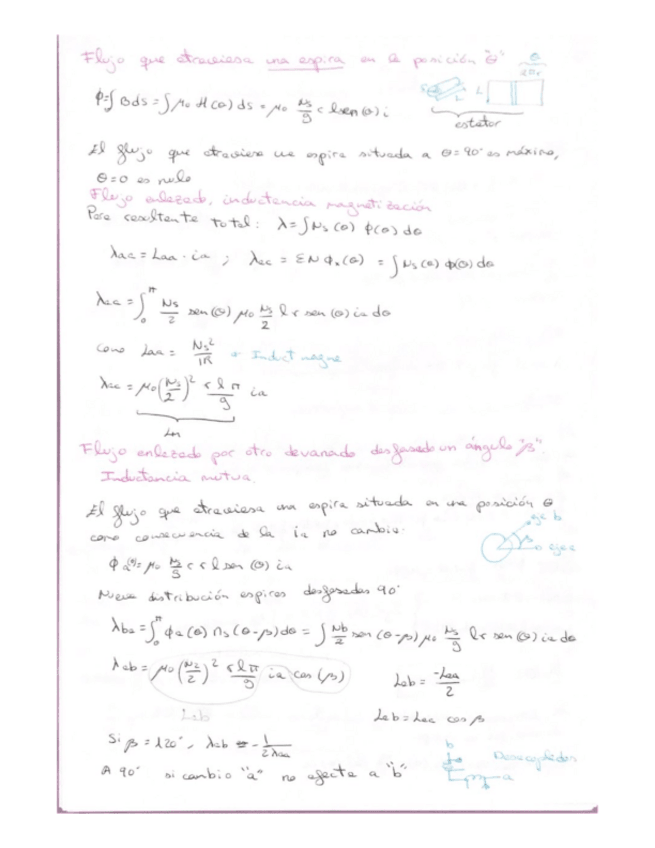 Flujo que atraviesa una espira en la posición "θ"
θ
2πr
L
L
ϕ=∫BdS = ∫μo H(θ) dS = μo Ns/g r l sen(θ) i
estator
El flujo que atraviesa una espira situada a θ=90° es máximo,
θ=0 es nulo
Flujo enlazado, inductancia magnetización
Para resultante total: λ=∫Ns(θ) ϕ(θ) dθ
λaa = Laa · ia ; λaa = ΣN ϕa(θ) = ∫Ns(θ) ϕ(θ) dθ
λaa = ∫₀^π Ns/2 sen(θ) μo Ns/2 l r sen(θ) ia dθ
como Laa = Ns²/ℝ → Induct magne
λaa = μo(Ns/2)² r l π/g ia
Lm
Flujo enlazado por otro devanado desfasado un ángulo "β".
Inductancia mutua.
El flujo que atraviesa una espira situada en una posición θ
como consecuencia de la ia no cambia.
eje b
β
eje a
ϕa(θ)= μo Ns/g r l sen(θ) ia
Nueva distribución espiras desfasadas 90°
λba = ∫₀^π ϕa(θ) ns(θ-β)dθ = ∫ Nb/2 sen(θ-β) μo Ns/g l r sen(θ) ia dθ
λab = μo(Ns/2)² r l π/g ia cos(β)
Lab = -Laa/2
Lab
Lab = Laa cos β
Si β = 120°, λab = -1/2λaa
b
Desacoplados
A 90° si cambio "a" no afecta a "b"
a